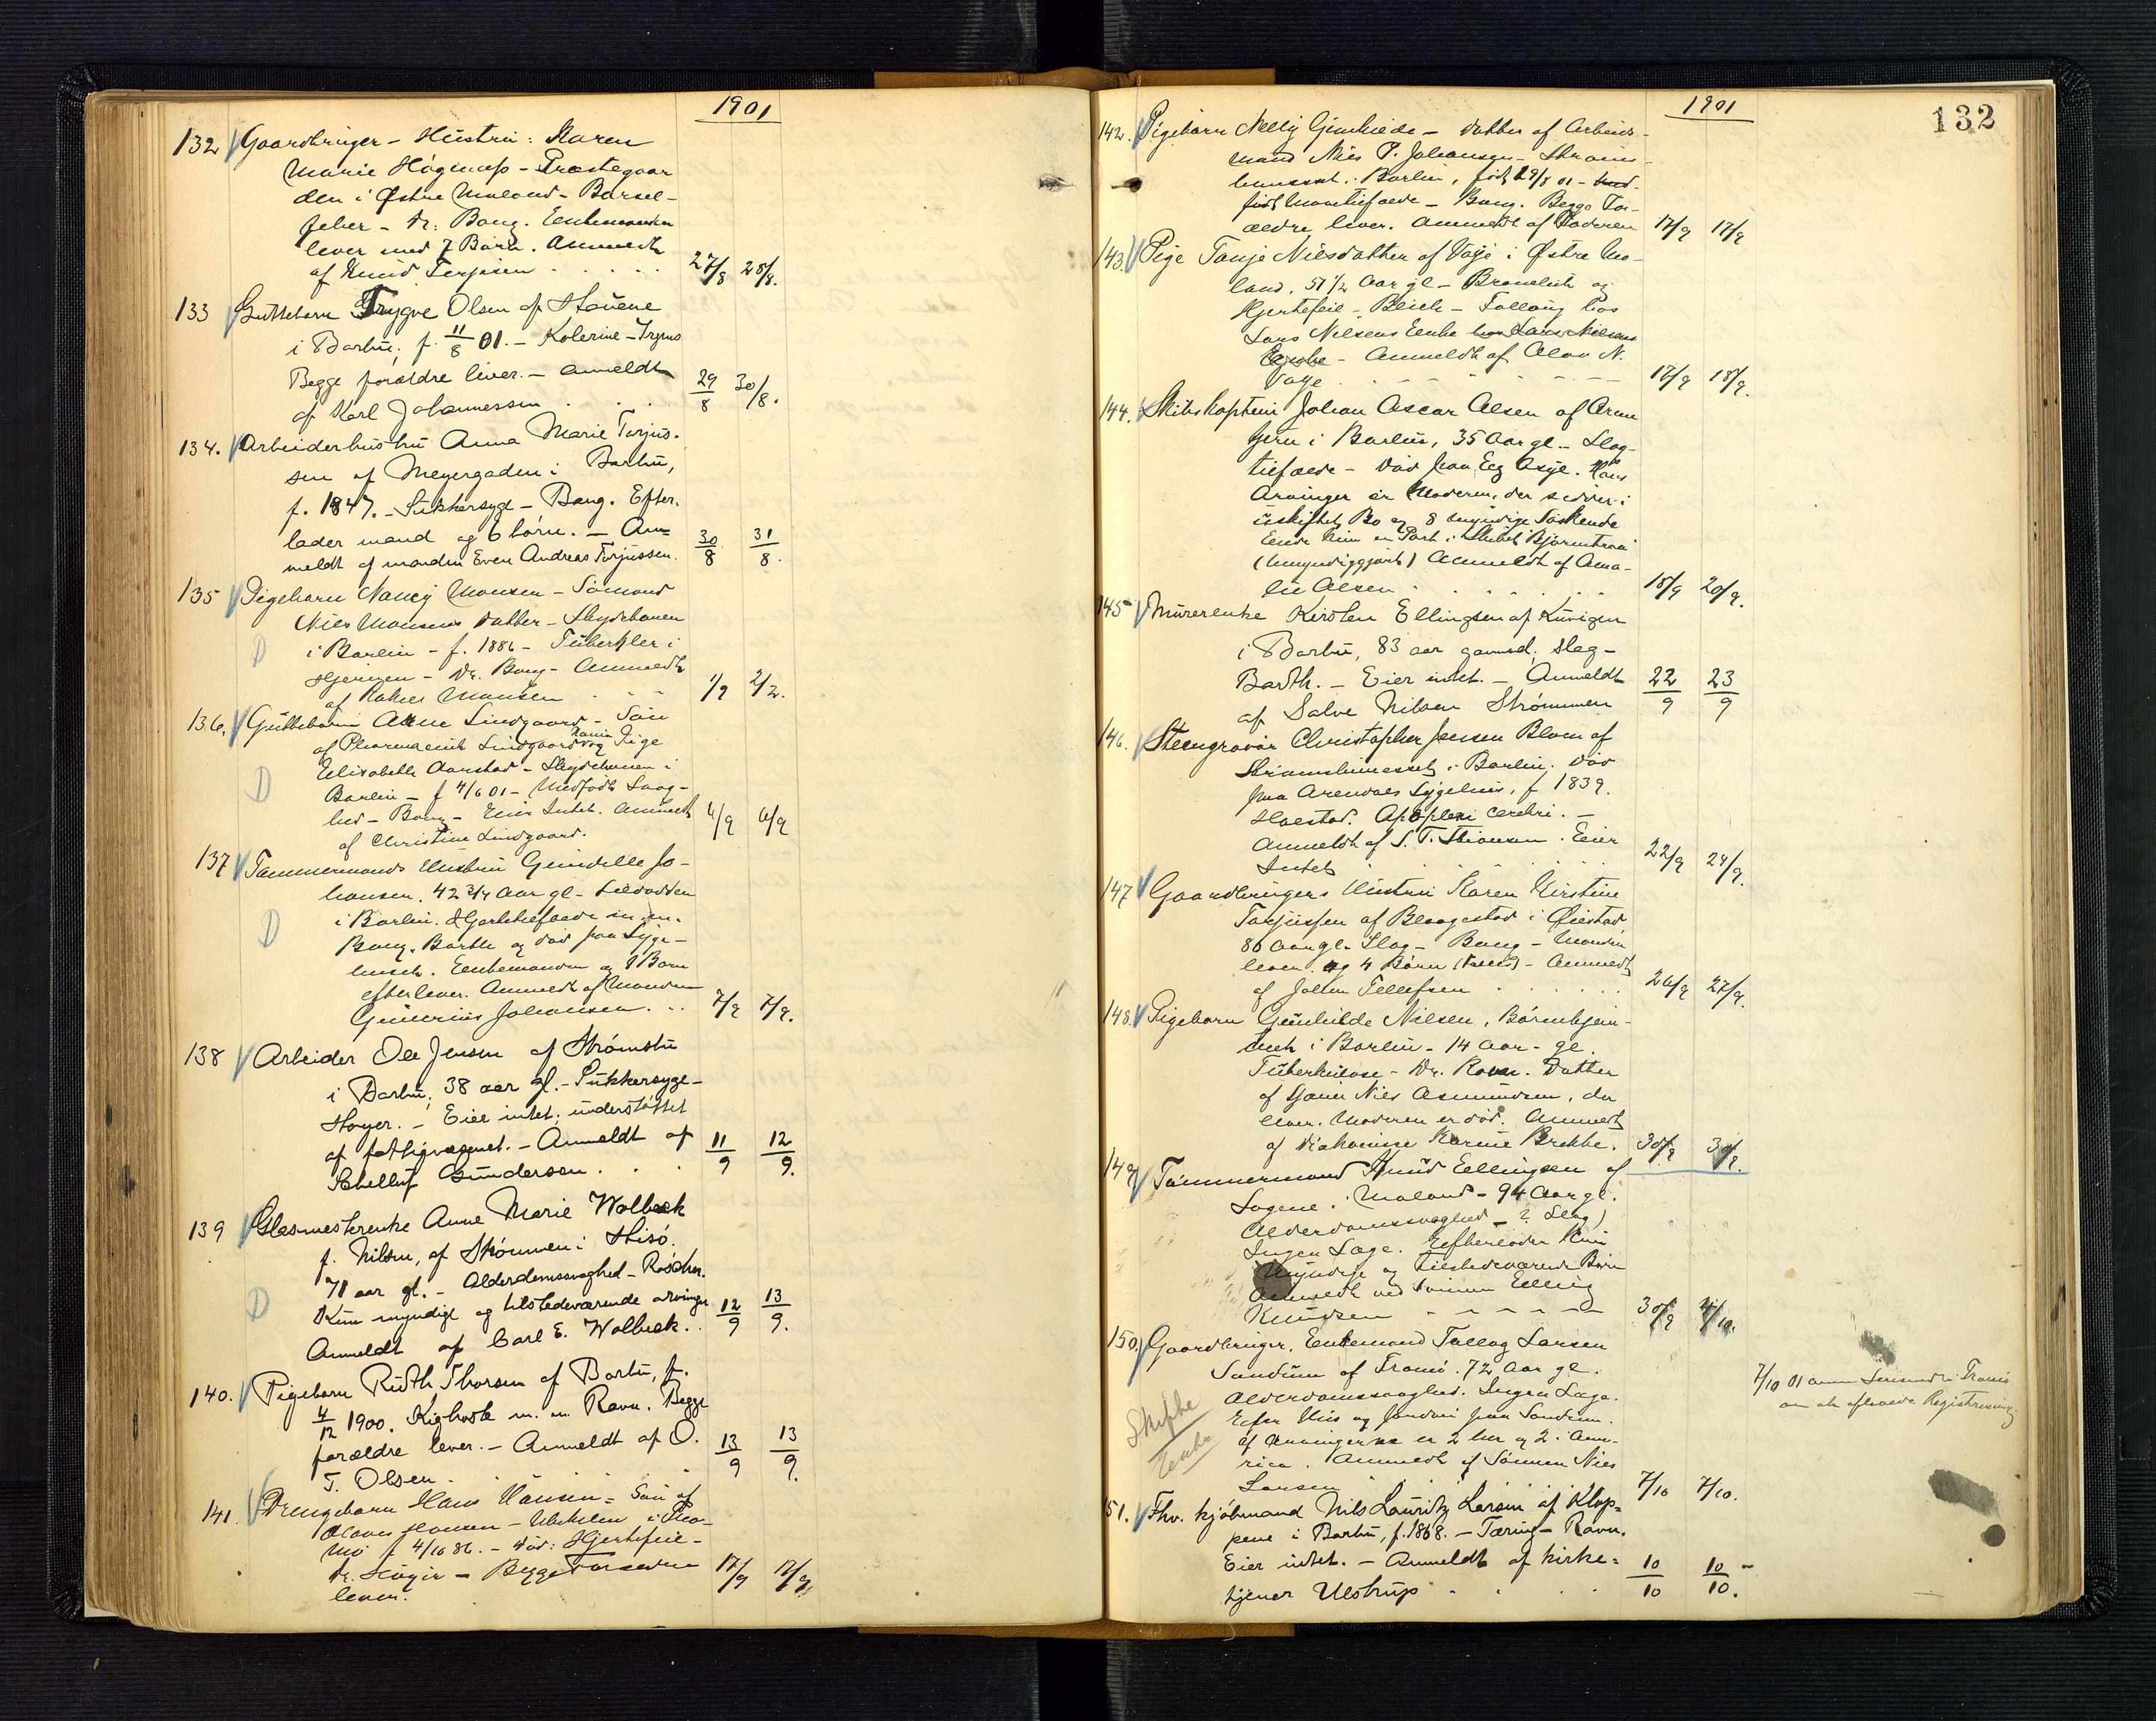 1901
132 Gaardbruger - Hustru: Karen
Marie Høgerup - Præstegaar
den i Østre Moland - Barsel-
feber - Dr: Bang. Enkemanden
lever med 7 Børn. Anmeldt
af Knud Terjesen 27/8 28/8.
133 Guttebarn Trygve Olsen af Stuene
i Barbu, f. 11/8 01. - Kolerine -
Begge forældre lever. - Anmeldt
af Karl Johannessen 29/8 30/8.
134. Arbeiderhustru Anna Marie Torjus-
sen af Meyergaden i Barbu,
f. 1847. - Sukkersyge - Bang. Efter-
lader mand og 6 børn. - An-
meldt af manden Even Andreas Torjussen. 30/8 31/8.
135 Pigebarn Nancy Monsen - Sømand
Niels Monsens Datter - Skydebanen
D i Barbu - f. 1886 - Tuberkler i
Hjernen - Dr. Bang - Anmeldt
af Monsen 1/9 2/9.
136. Guttebarn Arne Lindgaard - Søn
af Pharmaceut Lindgaard og Pige
Elisabeth Aarstad - Skydebanen i
D Barbu - f 4/6 01 - Medfødt Svag-
hed - Bang - Eier Intet. Anmeldt
af Christine Lindgaard. 6/9 6/9
137 Tømmermands Hustru Gunnille Jo-
hansen. 42 3/4 Aar gl -
D i Barbu. Hjerteslag m. m.
Bang. Barth og død paa Syge-
huset. Enkemanden og 8 Børn
efterlever. Anmeldt af Manden
Gunerius Johansen. 7/9 7/9.
138 Arbeider Ole Jensen af Strømsbu
i Barbu; 38 aar gl. - Sukkersyge -
Høyer. - Eier intet; understøttet
af fattigvæsenet. - Anmeldt af
Thelluf Gundersen 11/9 12/9.
139 Glasmesterenke Anne Marie Wolbeck
f. Nilsen, af Strømmen i Hisø.
71 aar gl. - Alderdomssvaghed - Röscher.
D Kun myndige og tilstedeværende arvinger
Anmeldt af Carl E. Wolbeck. 12/9 13/9.
140. Pigebarn Ruth Thorsen af Barbu, f.
4/12 1900. Kighoste m. m. Ravn. Begge
forældre lever. - Anmeldt af O.
T. Olsen. 13/9 13/9.
141. Drengebarn Hans Hansen - Søn af
Hansen - i Tro-
mø f 4/10 86. - Død: Hjertefeil -
Dr. Høyer - Begge Forældre
lever. 17/9 17/9
1901
132
142. Pigebarn Nelly Gunhilde - Datter af Arbeids-
mand Niels P. Johansen - Stroms-
busset i Barbu, født 29/8 01 - Med-
født - Bang. Begge For-
ældre lever. Anmeldt af Faderen 17/9 17/9
143. Pige Tonje Nilsdatter af Vøje i Østre Mo-
land, 51 1/2 Aar gl - Bronchit og
Hjertefeil - Bleich - hos
Lars Nielsens Enke hos Lars Nielsens
Enke - Anmeldt af Olav N.
Vøje 17/9 18/9.
144. Skibskaptein Johan Oscar Olsen af
i Barbu, 35 Aar gl - Slag-
tilfælde - Død paa Hans
Arvinger er Moderen, der sidder i
uskiftet Bo og 8 myndige Søskende
Eiede kun en Part i Skibet
(Umyndiggjort) Anmeldt af Ama-
lie Olsen 18/9 20/9.
145 Murerenke Kirsten Ellingsen af Kuvigen
i Barbu, 83 aar gammel. Slag -
Barth. - Eier intet. - Anmeldt
af Salve Nilsen Strømmen 22/9 23/9
146. Steengravør Christopher Jensen Bloom af
i Barbu. Død
paa Arendals Sygehus, f 1839.
Apoplexi cerebri. -
Anmeldt af S. T. Eier
Intet 22/9 24/9.
147 Gaardbrugers Hustru Karen Kirstine
Torjussen af Blaagestad i Øiestad
86 Aar gl. Slag - Bang - Manden
lever og 4 Børn - Anmeldt
af Tellefsen 26/9 27/9.
148. Pigebarn Gunhilde Nielsen, Børnehjem-
met i Barbu - 14 Aar - gl.
Tuberkulose - Dr. Ravn. Datter
af Niels Asmundsen, der
lever. Moderen er død. Anmeldt
af Diakonisse Karine Brekke. 30/9 30/9.
149 Tømmermand Knud Ellingsen af
Sogene i Moland - 94 Aar gl.
Alderdomssvaghed - ? Slag)
Ingen Læge. Efterlader kun
Myndige og tilstedeværende Børn
Anmeldt ved Sønnen Elling
Knudsen 30/9 4/10.
150. Gaardbruger, Enkemand Tallag Larsen
Sandum af Tromø. 72 Aar gl.
Alderdomssvaghed. Ingen Læge.
Skifte Eier Hus og Jordvei paa Sandum.
Enke Af Arvingerne er 2 her og 2 i Ame-
rica. Anmeldt af Sønnen Niels
Larsen 7/10 7/10.
7/10 01 anm Lensmd i Tromø
om at afholde Registrering
151. Fhv. kjøbmand Nils Lauritz Larsen af Klop-
pene i Barbu, f. 1868. - Tæring - Ravn.
Eier intet. - Anmeldt af kirke-
tjener Ulstrup 10/10 10/10.